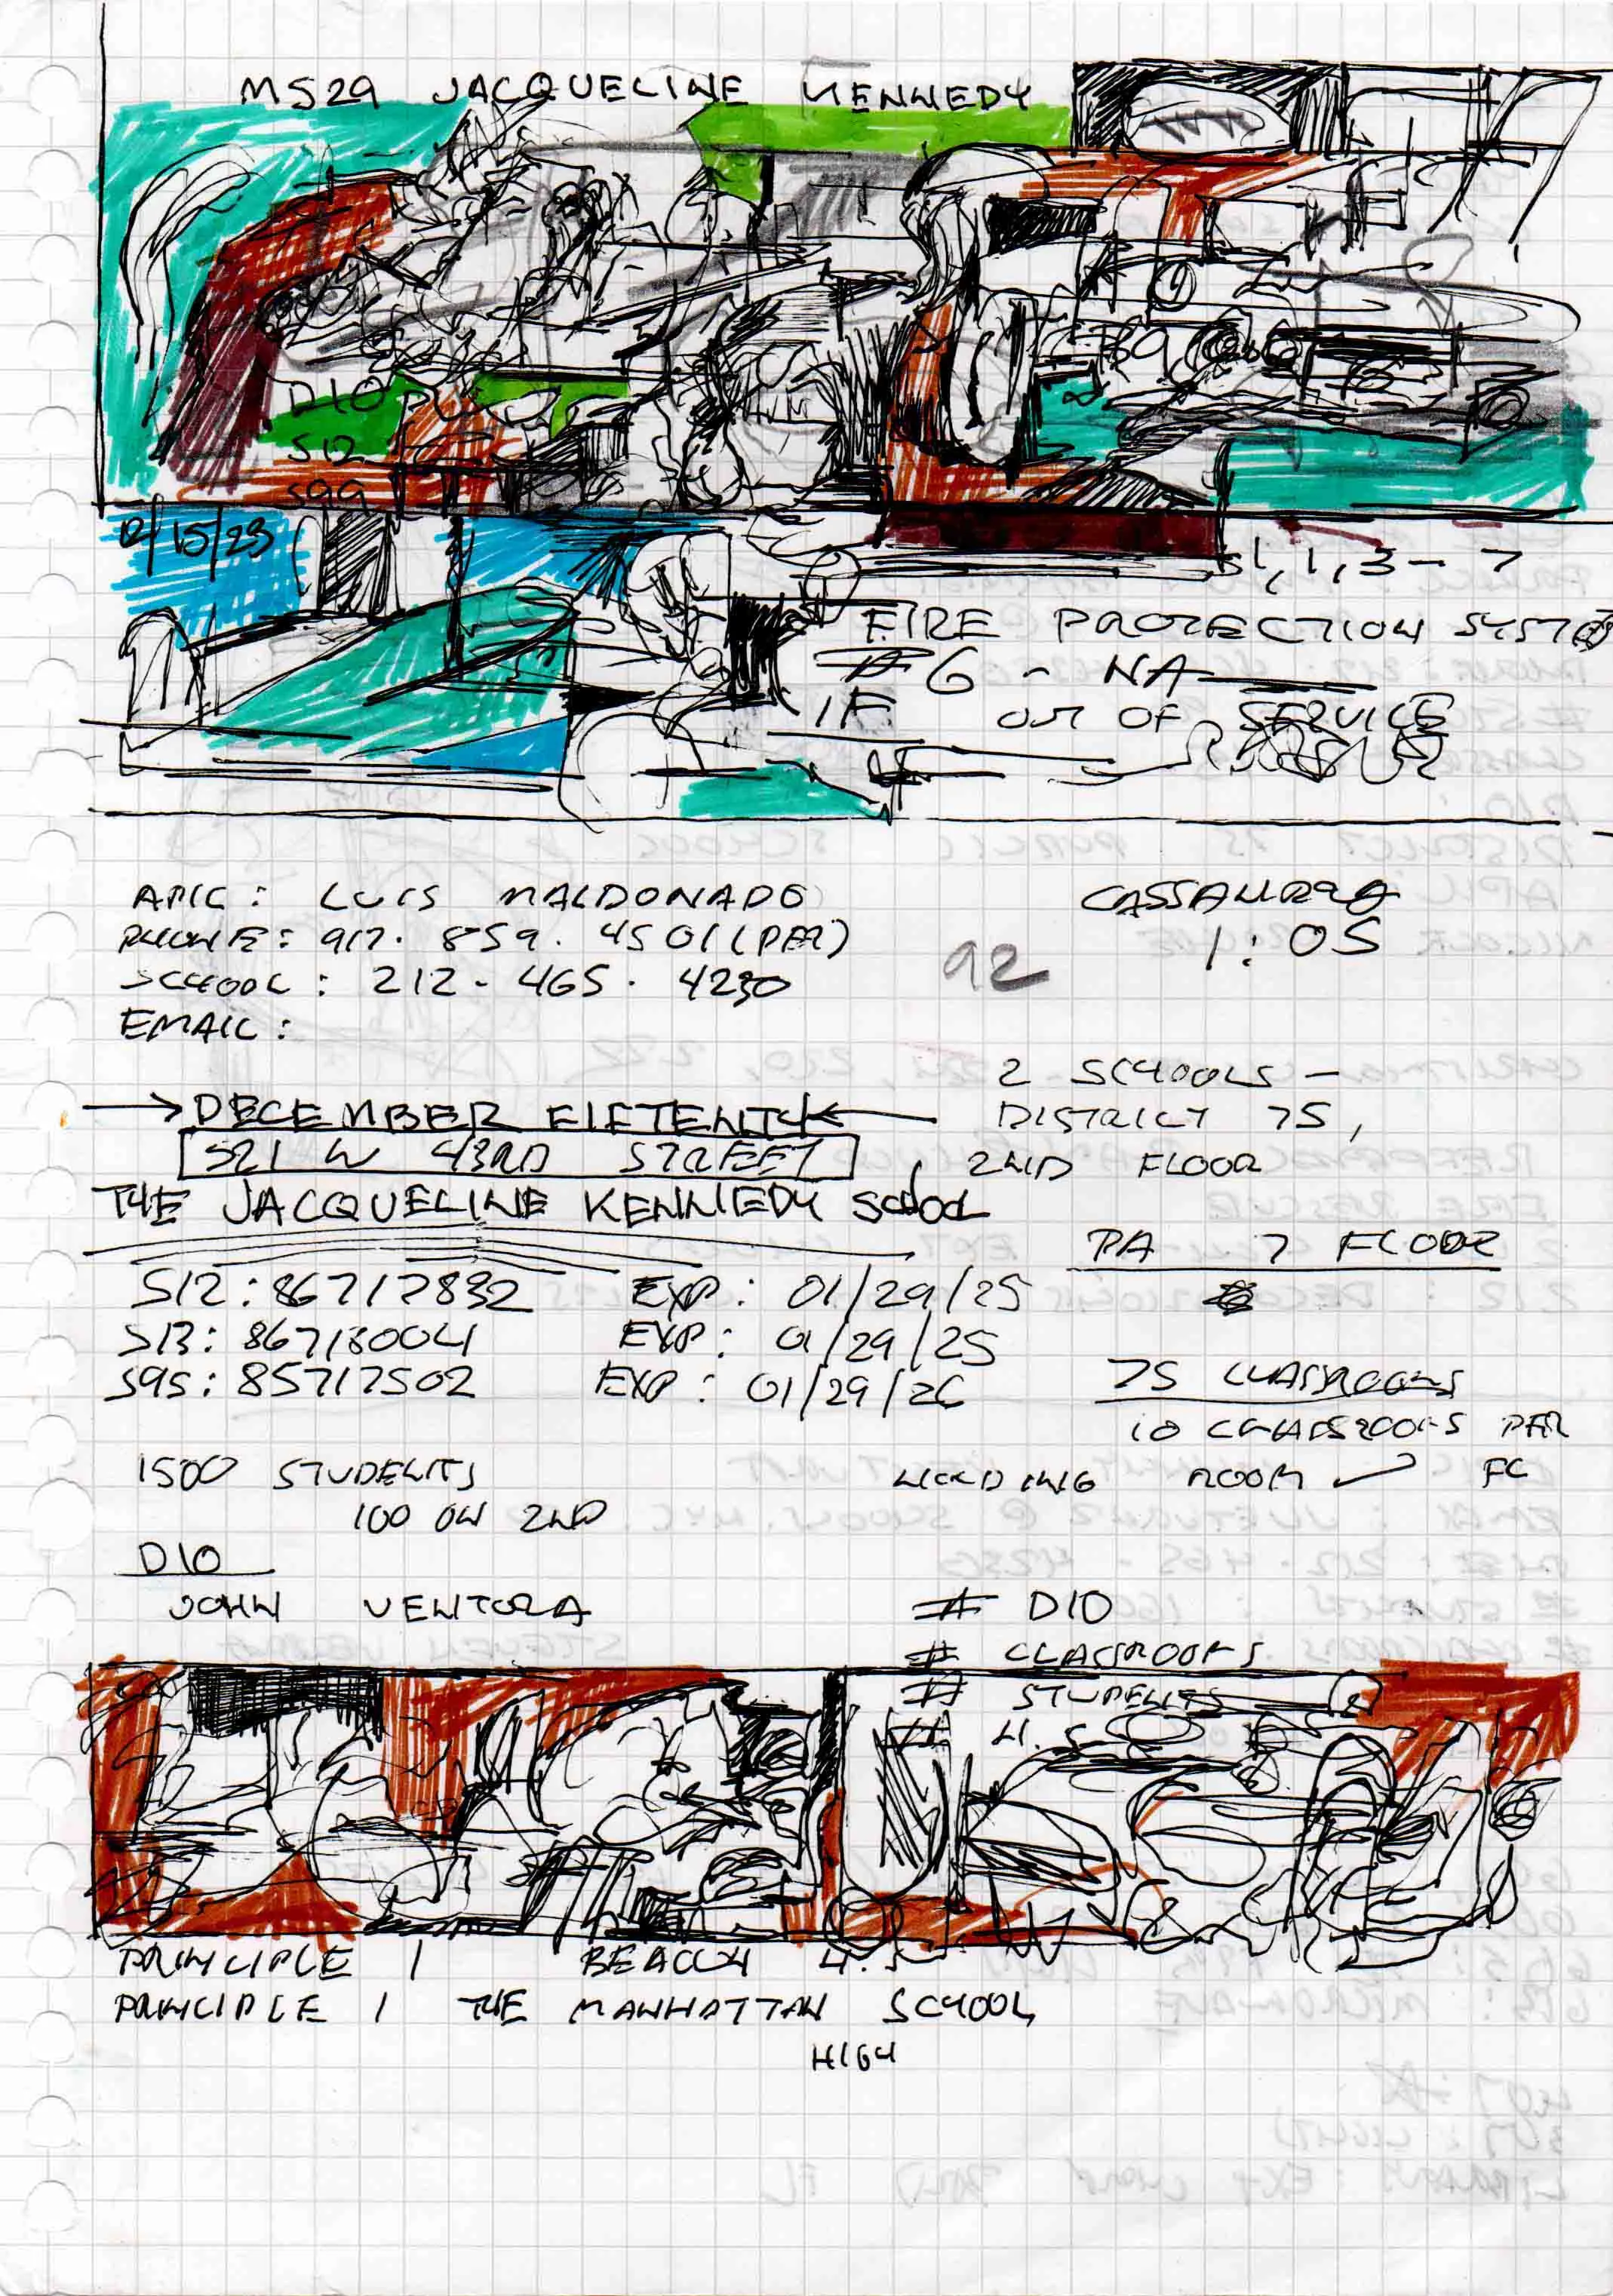 MS29 JACQUELINE KENNEDY
D10
S12
S99
12/15/23
51, 1, 3 - 7
FIRE PROTECTION SYST
#6 - NA
IF OUT OF SERVICE
APIC: LUIS MALDONADO
PHONE: 917. 859. 4501 (PER)
SCHOOL: 212 - 465. 4230
EMAIL:
CASSANDRA
1:05
92
2 SCHOOLS -
DISTRICT 75,
2ND FLOOR
→ DECEMBER FIFTENTH ←
521 W 43RD STREET
THE JACQUELINE KENNEDY SCHOOL
PA 7 FLOOR
S12: 86717832 EXP: 01/29/25
S13: 86718004 EXP: 01/29/25
S95: 85717502 EXP: 01/29/26
75 CLASSROOMS
10 CLASSROOMS PER
FL
1500 STUDENTS
100 ON 2ND
ROOM ✓
D10
JOHN VENTORA
# D10
# CLASSROOMS
# STUDENTS
# H.S
PRINCIPLE 1 BEACON H.S
PRINCIPLE 1 THE MANHATTAN SCHOOL
HIGH